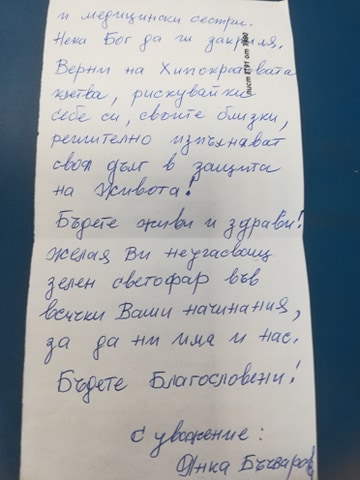 и медицински сестри.
Нека Бог да ги закриля.
Верни на Хипократовата
клетва, рискувайки
себе си, своите близки,
решително изпълняват
своя дълг в защита
на живота!
Бъдете живи и здрави!
Желая Ви неугасващ
зелен светофар във
всички Ваши начинания,
за да ни има и нас.
Бъдете Благословени!
С уважение:
Янка Бъчварова